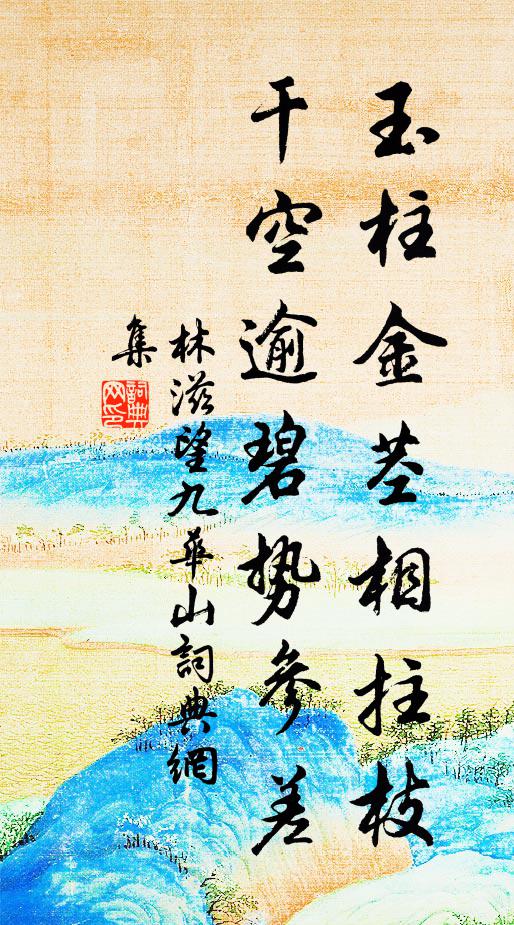 玉柱金茎相拄枝
干空逾碧势参差
林滋望九华山詞典網
集
詞典
网印